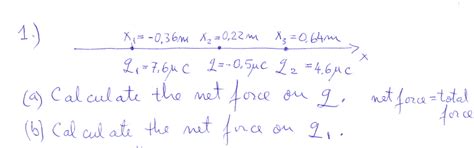 1.) x₁=-0,36m x₂=0,22m x₃=0,64m
x
q₁=7,6μC q=-0,5μC q₂=4,6μC
(a) Calculate the net force on q. net force = total force
(b) Calculate the net force on q₁.